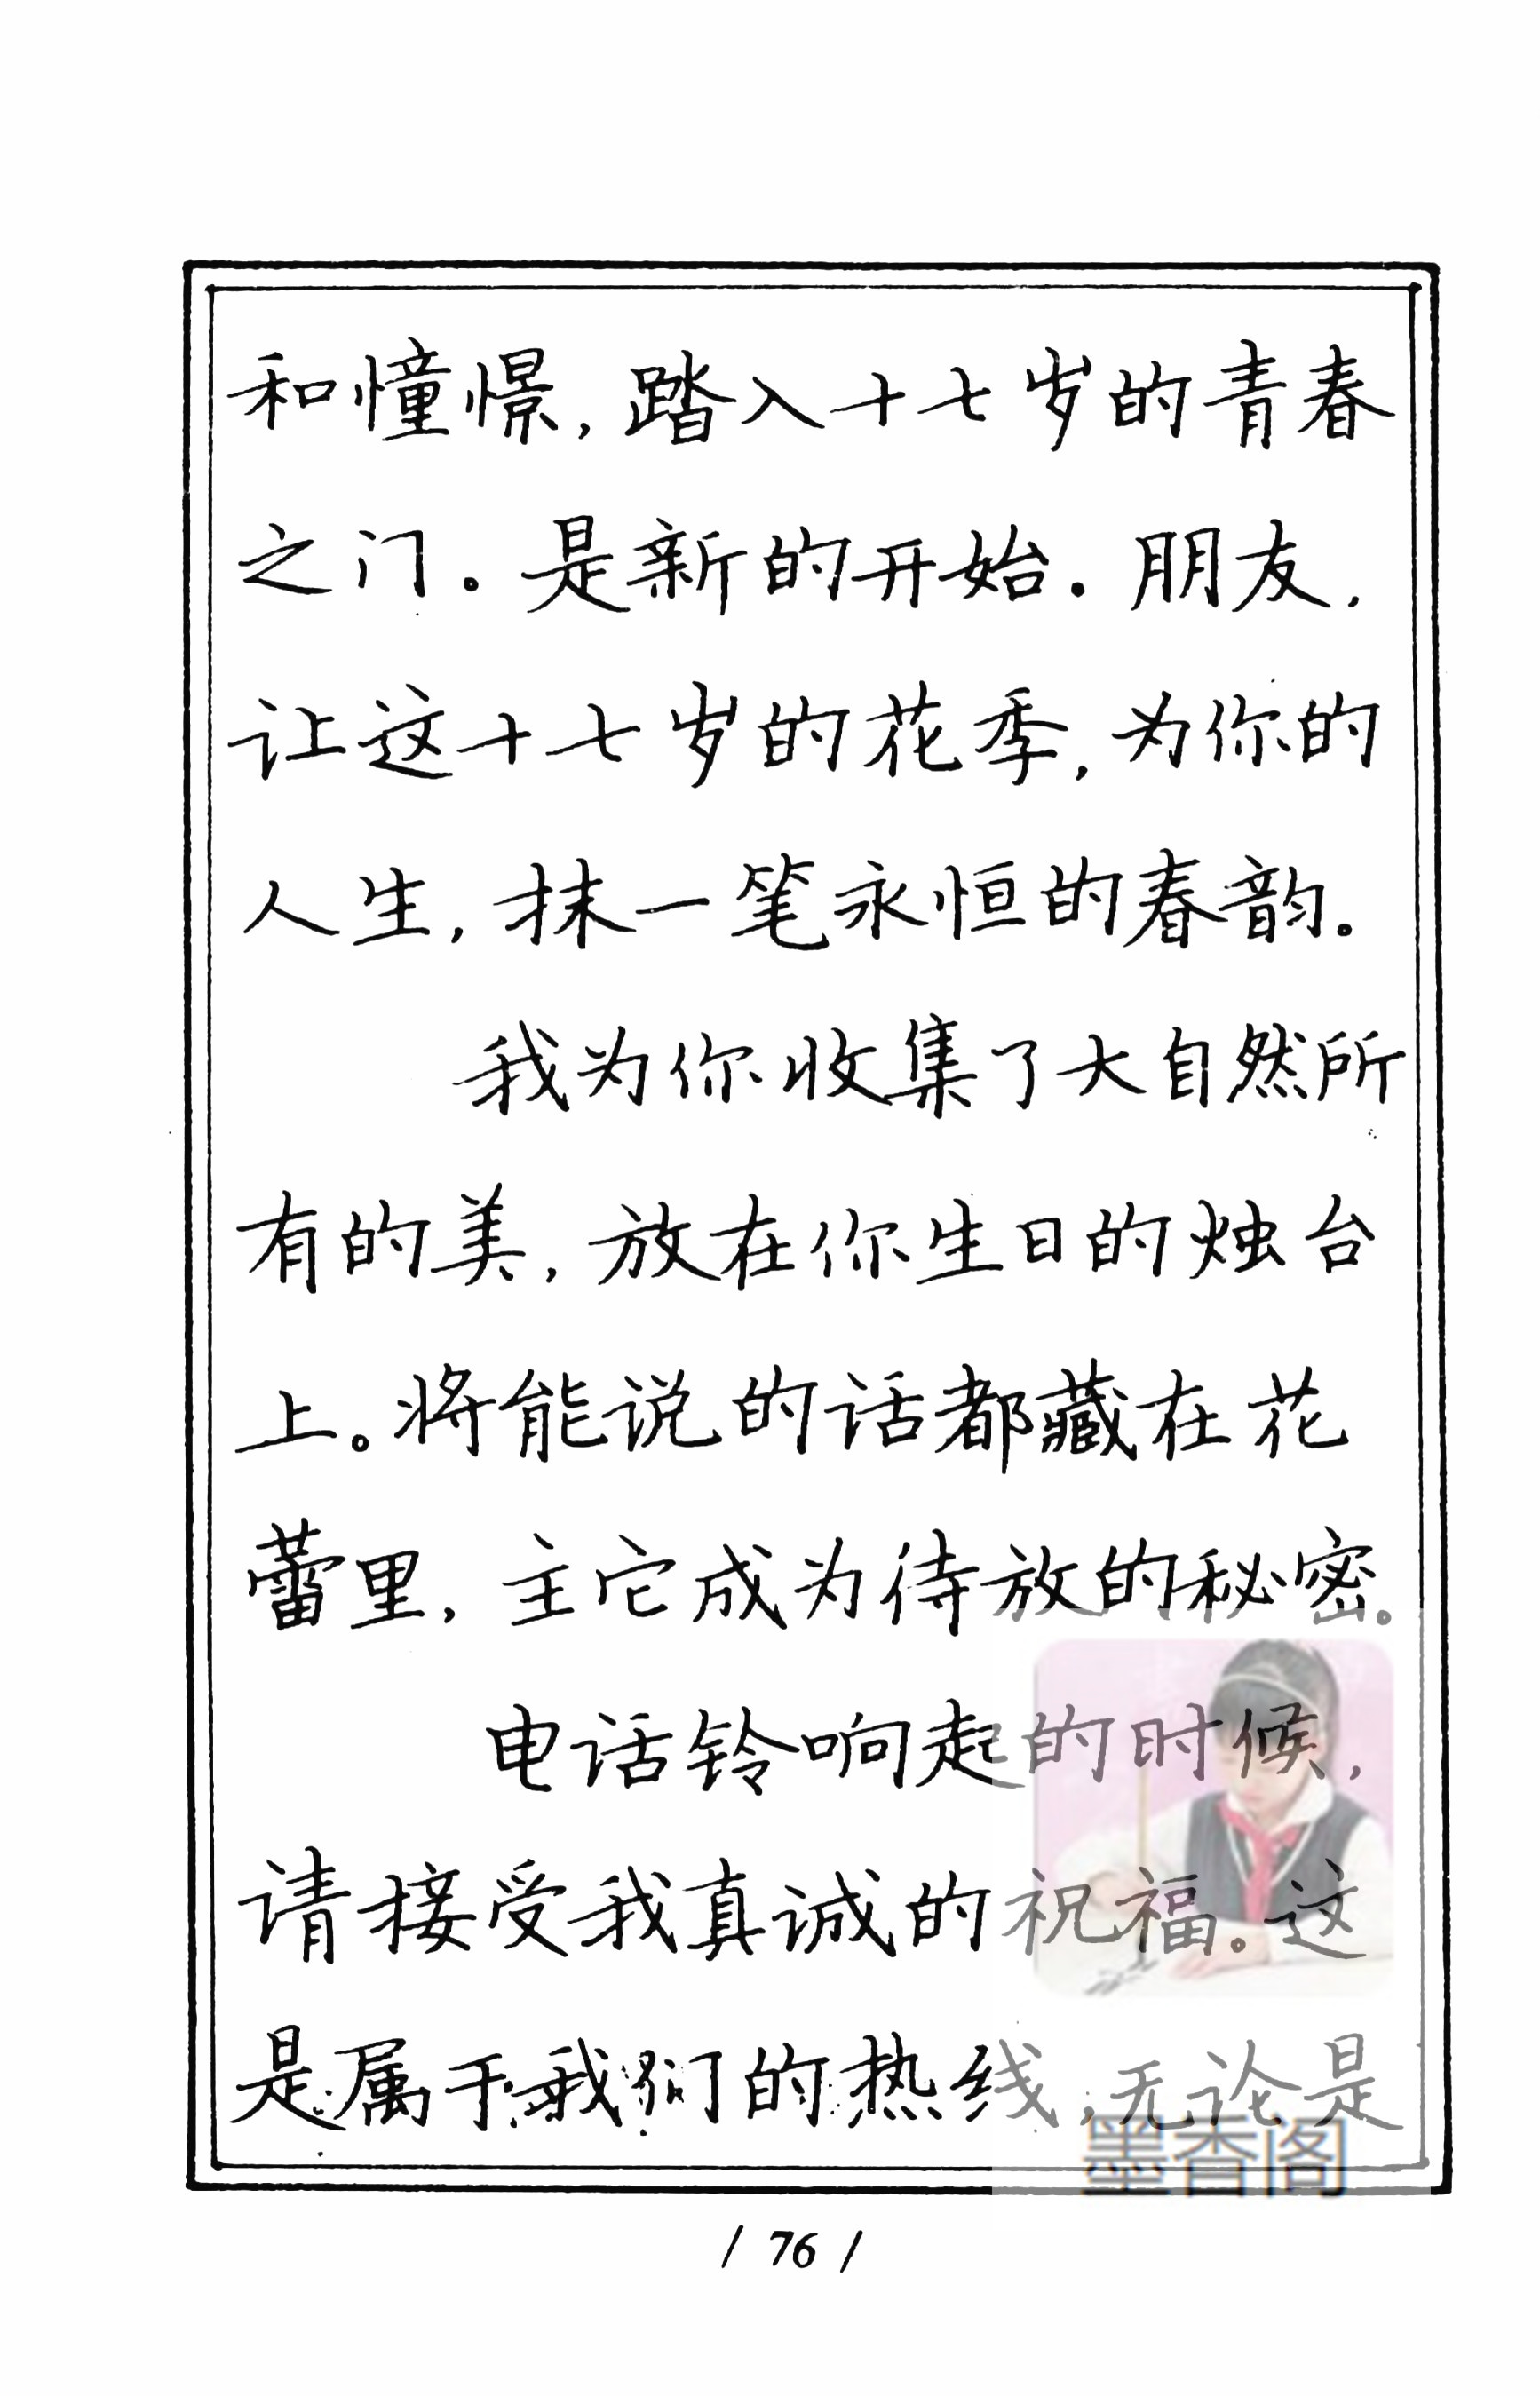 和憧憬,踏入十七岁的青春
之门。是新的开始.朋友,
让这十七岁的花季,为你的
人生,抹一笔永恒的春韵。
我为你收集了大自然所
有的美,放在你生日的烛台
上。将能说的话都藏在花
蕾里,主它成为待放的秘密。
电话铃响起的时候,
请接受我真诚的祝福。这
是属于我们的热线,无论是
墨香阁
/ 76 /